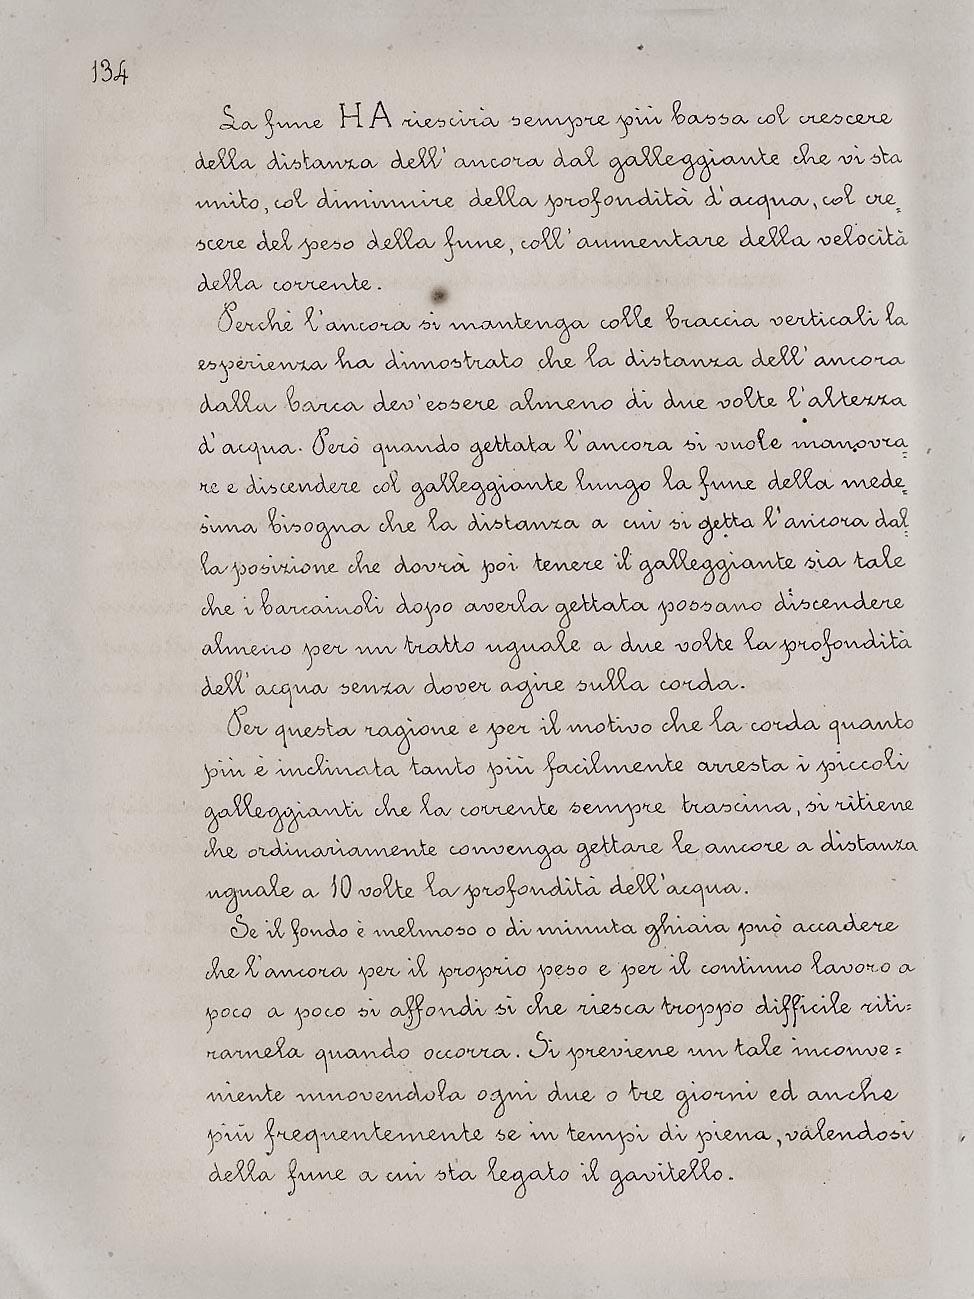 134
La fune HA riescirà sempre più bassa col crescere
della distanza dell'ancora dal galleggiante che vi sta
unito, col diminuire della profondità d'acqua, col cre=
scere del peso della fune, coll'aumentare della velocità
della corrente.
Perchè l'ancora si mantenga colle braccia verticali la
esperienza ha dimostrato che la distanza dell'ancora
dalla barca dev'essere almeno di due volte l'altezza
d'acqua. Però quando gettata l'ancora si vuole manovra=
re e discendere col galleggiante lungo la fune della mede=
sima bisogna che la distanza a cui si getta l'ancora dal=
la posizione che dovrà poi tenere il galleggiante sia tale
che i barcaiuoli dopo averla gettata possano discendere
almeno per un tratto uguale a due volte la profondità
dell'acqua senza dover agire sulla corda.
Per questa ragione e per il motivo che la corda quanto
più è inclinata tanto più facilmente arresta i piccoli
galleggianti che la corrente sempre trascina, si ritiene
che ordinariamente convenga gettare le ancore a distanza
uguale a 10 volte la profondità dell'acqua.
Se il fondo è melmoso o di minuta ghiaia può accadere
che l'ancora per il proprio peso e per il continuo lavoro a
poco a poco si affondi si che riesca troppo difficile riti=
rarnela quando occorra. Si previene un tale inconve=
niente muovendola ogni due o tre giorni ed anche
più frequentemente se in tempi di piena, valendosi
della fune a cui sta legato il gavitello.